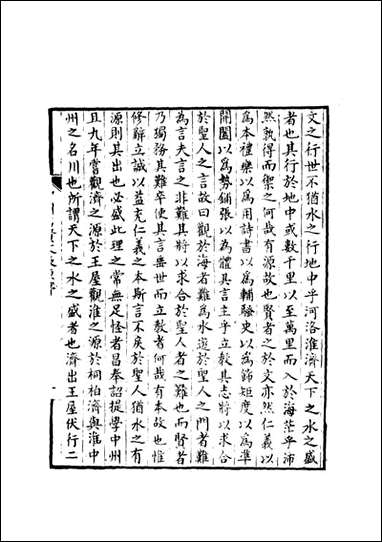 文之行世不猶水之行地中乎河洛淮濟天下之水之盛
者也其行於地中或數千里以至萬里而入於海茫乎沛
然孰得而禦之何哉有源故也賢者之於文亦然仁義以
為本禮樂以為用詩書以為輔騷史以為飾矩度以為準
開闔以為勢鋪張以為體其言主乎立教其志將以求合
於聖人之言故曰觀於海者難為水遊於聖人之門者難
為言夫言之非難其將以求合於聖人者之難也而賢者
乃獨務其難卒使其言垂世而立教者何哉有本故也惟
修辭立誠以益充仁義之本斯言不戾於聖人猶水之有
源則其出也必盛此理之常無足怪者昌奉詔提學中州
且九年嘗觀濟之源於王屋觀淮之源於桐柏濟與淮中
州之名川也所謂天下之水之盛者也濟出王屋伏行二